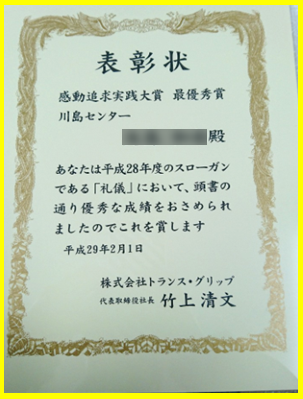 表彰状
感動追求実践大賞 最優秀賞
川島センター
殿
あなたは平成28年度のスローガン
である「礼儀」において、頭書の
通り優秀な成績をおさめられ
ましたのでこれを賞します
平成29年2月1日
株式会社トランス・グリップ
代表取締役社長 竹上清文